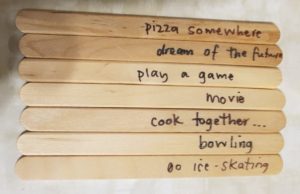 pizza somewhere
dream of the future
play a game
movie
cook together...
bowling
go ice-skating